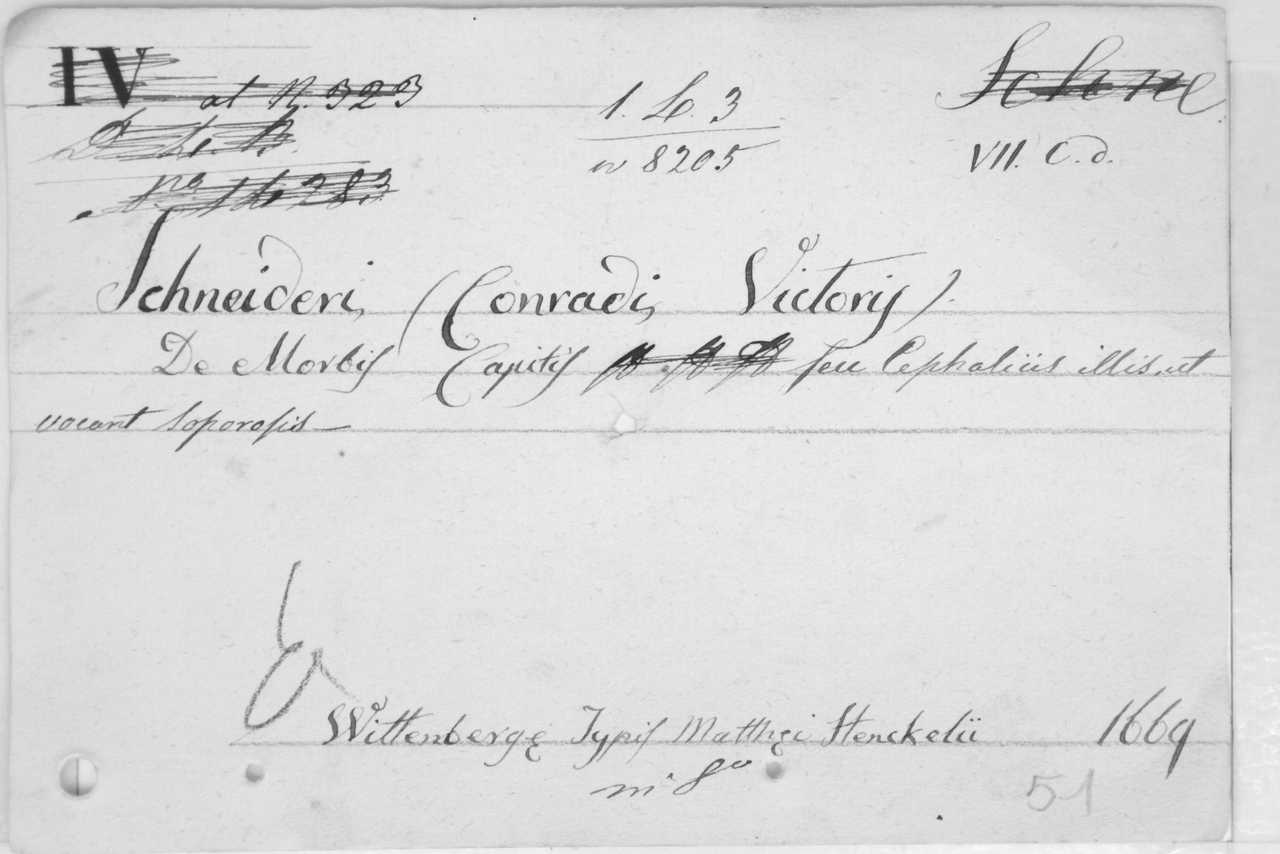 IV at N. 323
1. L. 3
Schne
n 8205
VII. C. d.
No 14283
Schneideri, (Conradi, Victoris).
De Morbis Capitis seu Cephalicis illis, ut
vocant soporosis —
Wittenbergę Typis Matthęi Henckelii 1669
in 8vo
51